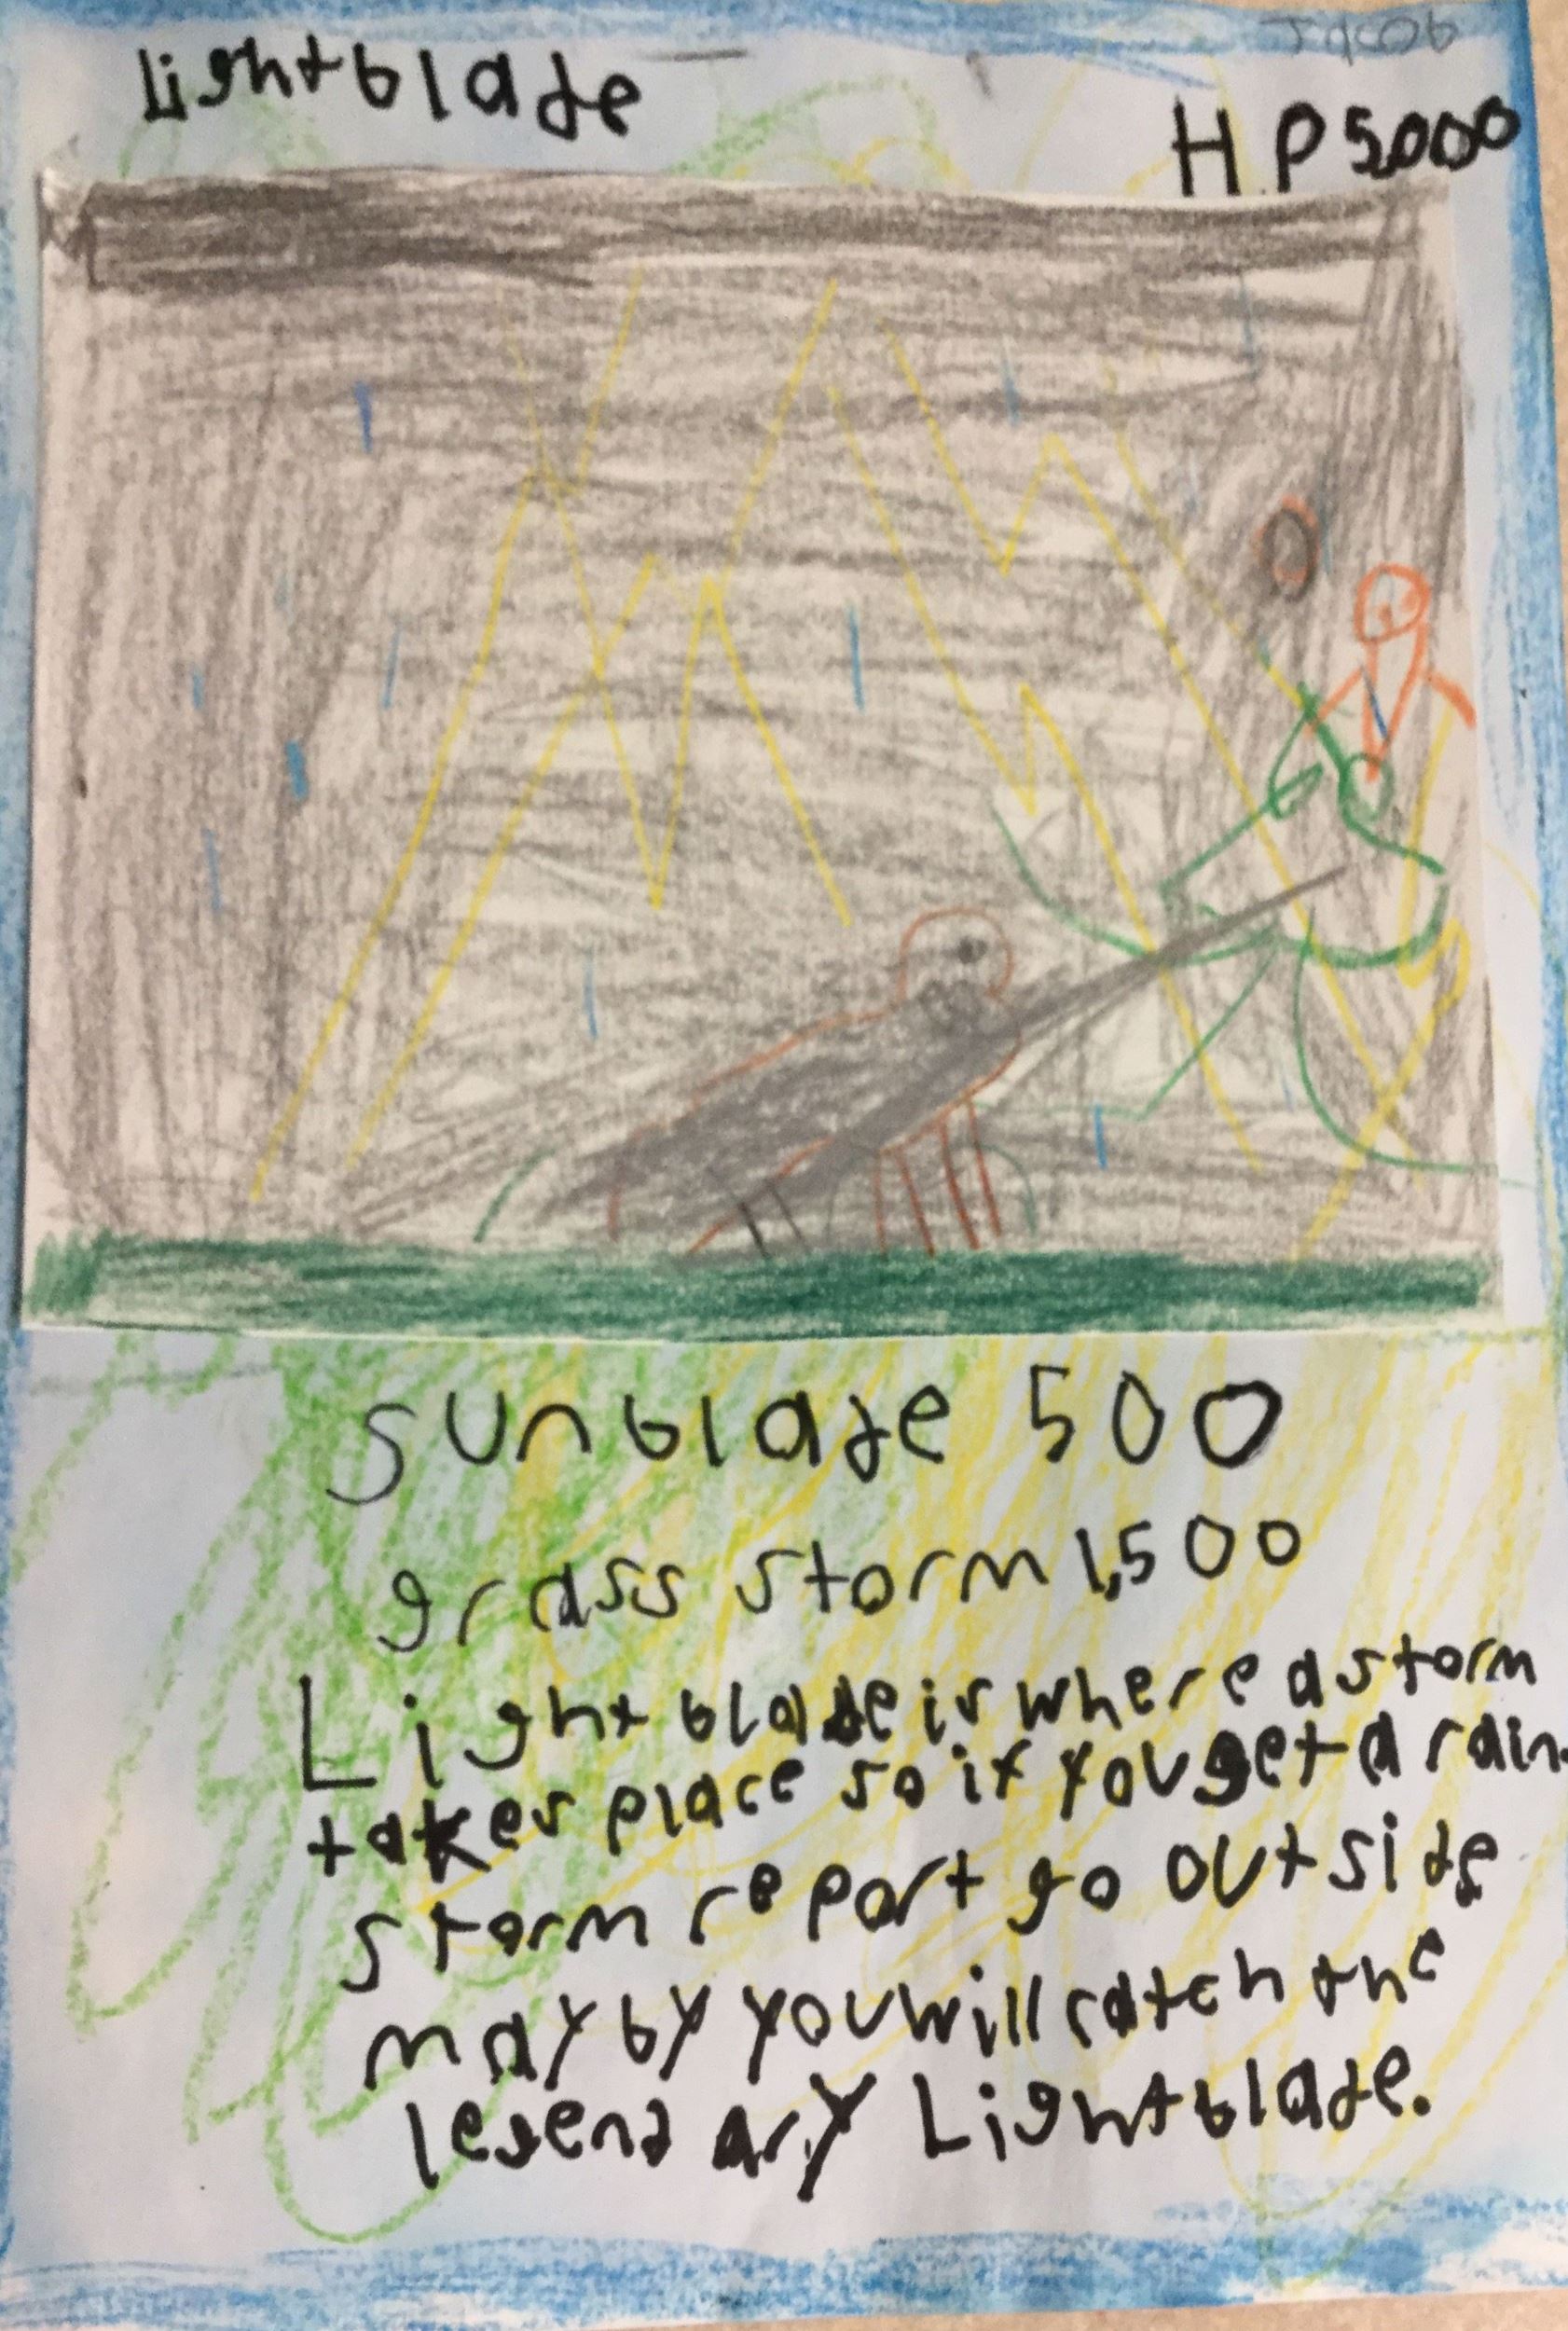 Jacob
Lightblade
H.P 5000
sunblade 500
grass storm 1,500
Lightblade is where a storm
takes place so if you get a rain
storm report go outside
mayby you will catch the
legendary Lightblade.